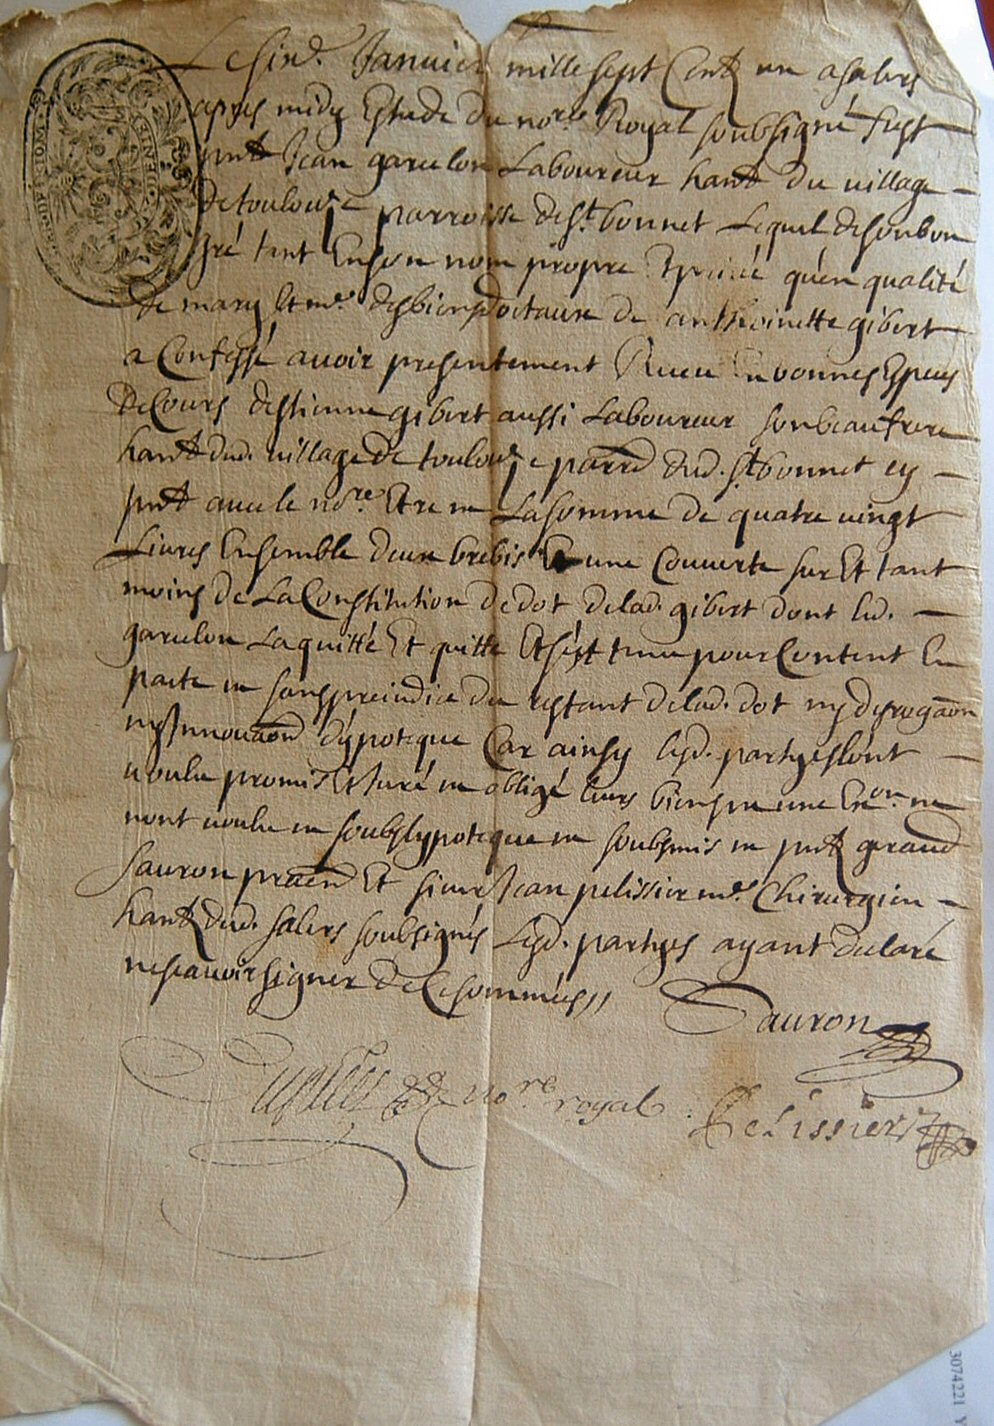 Le sixe. Janvier mille sept Cent un a salers
apres midy Estude du nore. Royal soubsigné fust
pnt Jean garcelon Laboureur hant du village
de toulouse parroisse de st. bonnet Lequel de son bon
gré tant En son nom propre Et privé qu'en qualité
de mary Et me. des biens dotaux de anthoinette gibert
a Confessé avoir presentement Receu En bonnes Espeses
de Cours destienne gibert aussi Laboureur son beau frere
hant dud. village de toulouse parre dud. st bonnet icy
pnt avec le nore. Et re La somme de quatre vingt
Livres Ensemble deux brebis Et une Couverte sur Et tant
moins de La Constitution de dot de lad. gibert dont led.
garcelon La quitté Et quitte Et s'est tenu pour Content En
parte sans preiudice du restant de lad. dot ny derogaon
ny Innovaon d'ypoteque Car ainsy lesd. partyes lont
voulu promis Et Juré obligé leurs biens une
nont voulu soubs lypoteque soubsmis pnt geraud
sauron praen Et sieur Jean pelissier me. Chirurgien
hant dud. salers soubsignés Lesd. partyes ayant declaré
ne scavoir signer de Ce sommées
Sauron
nore royal
Pelissier
3074221